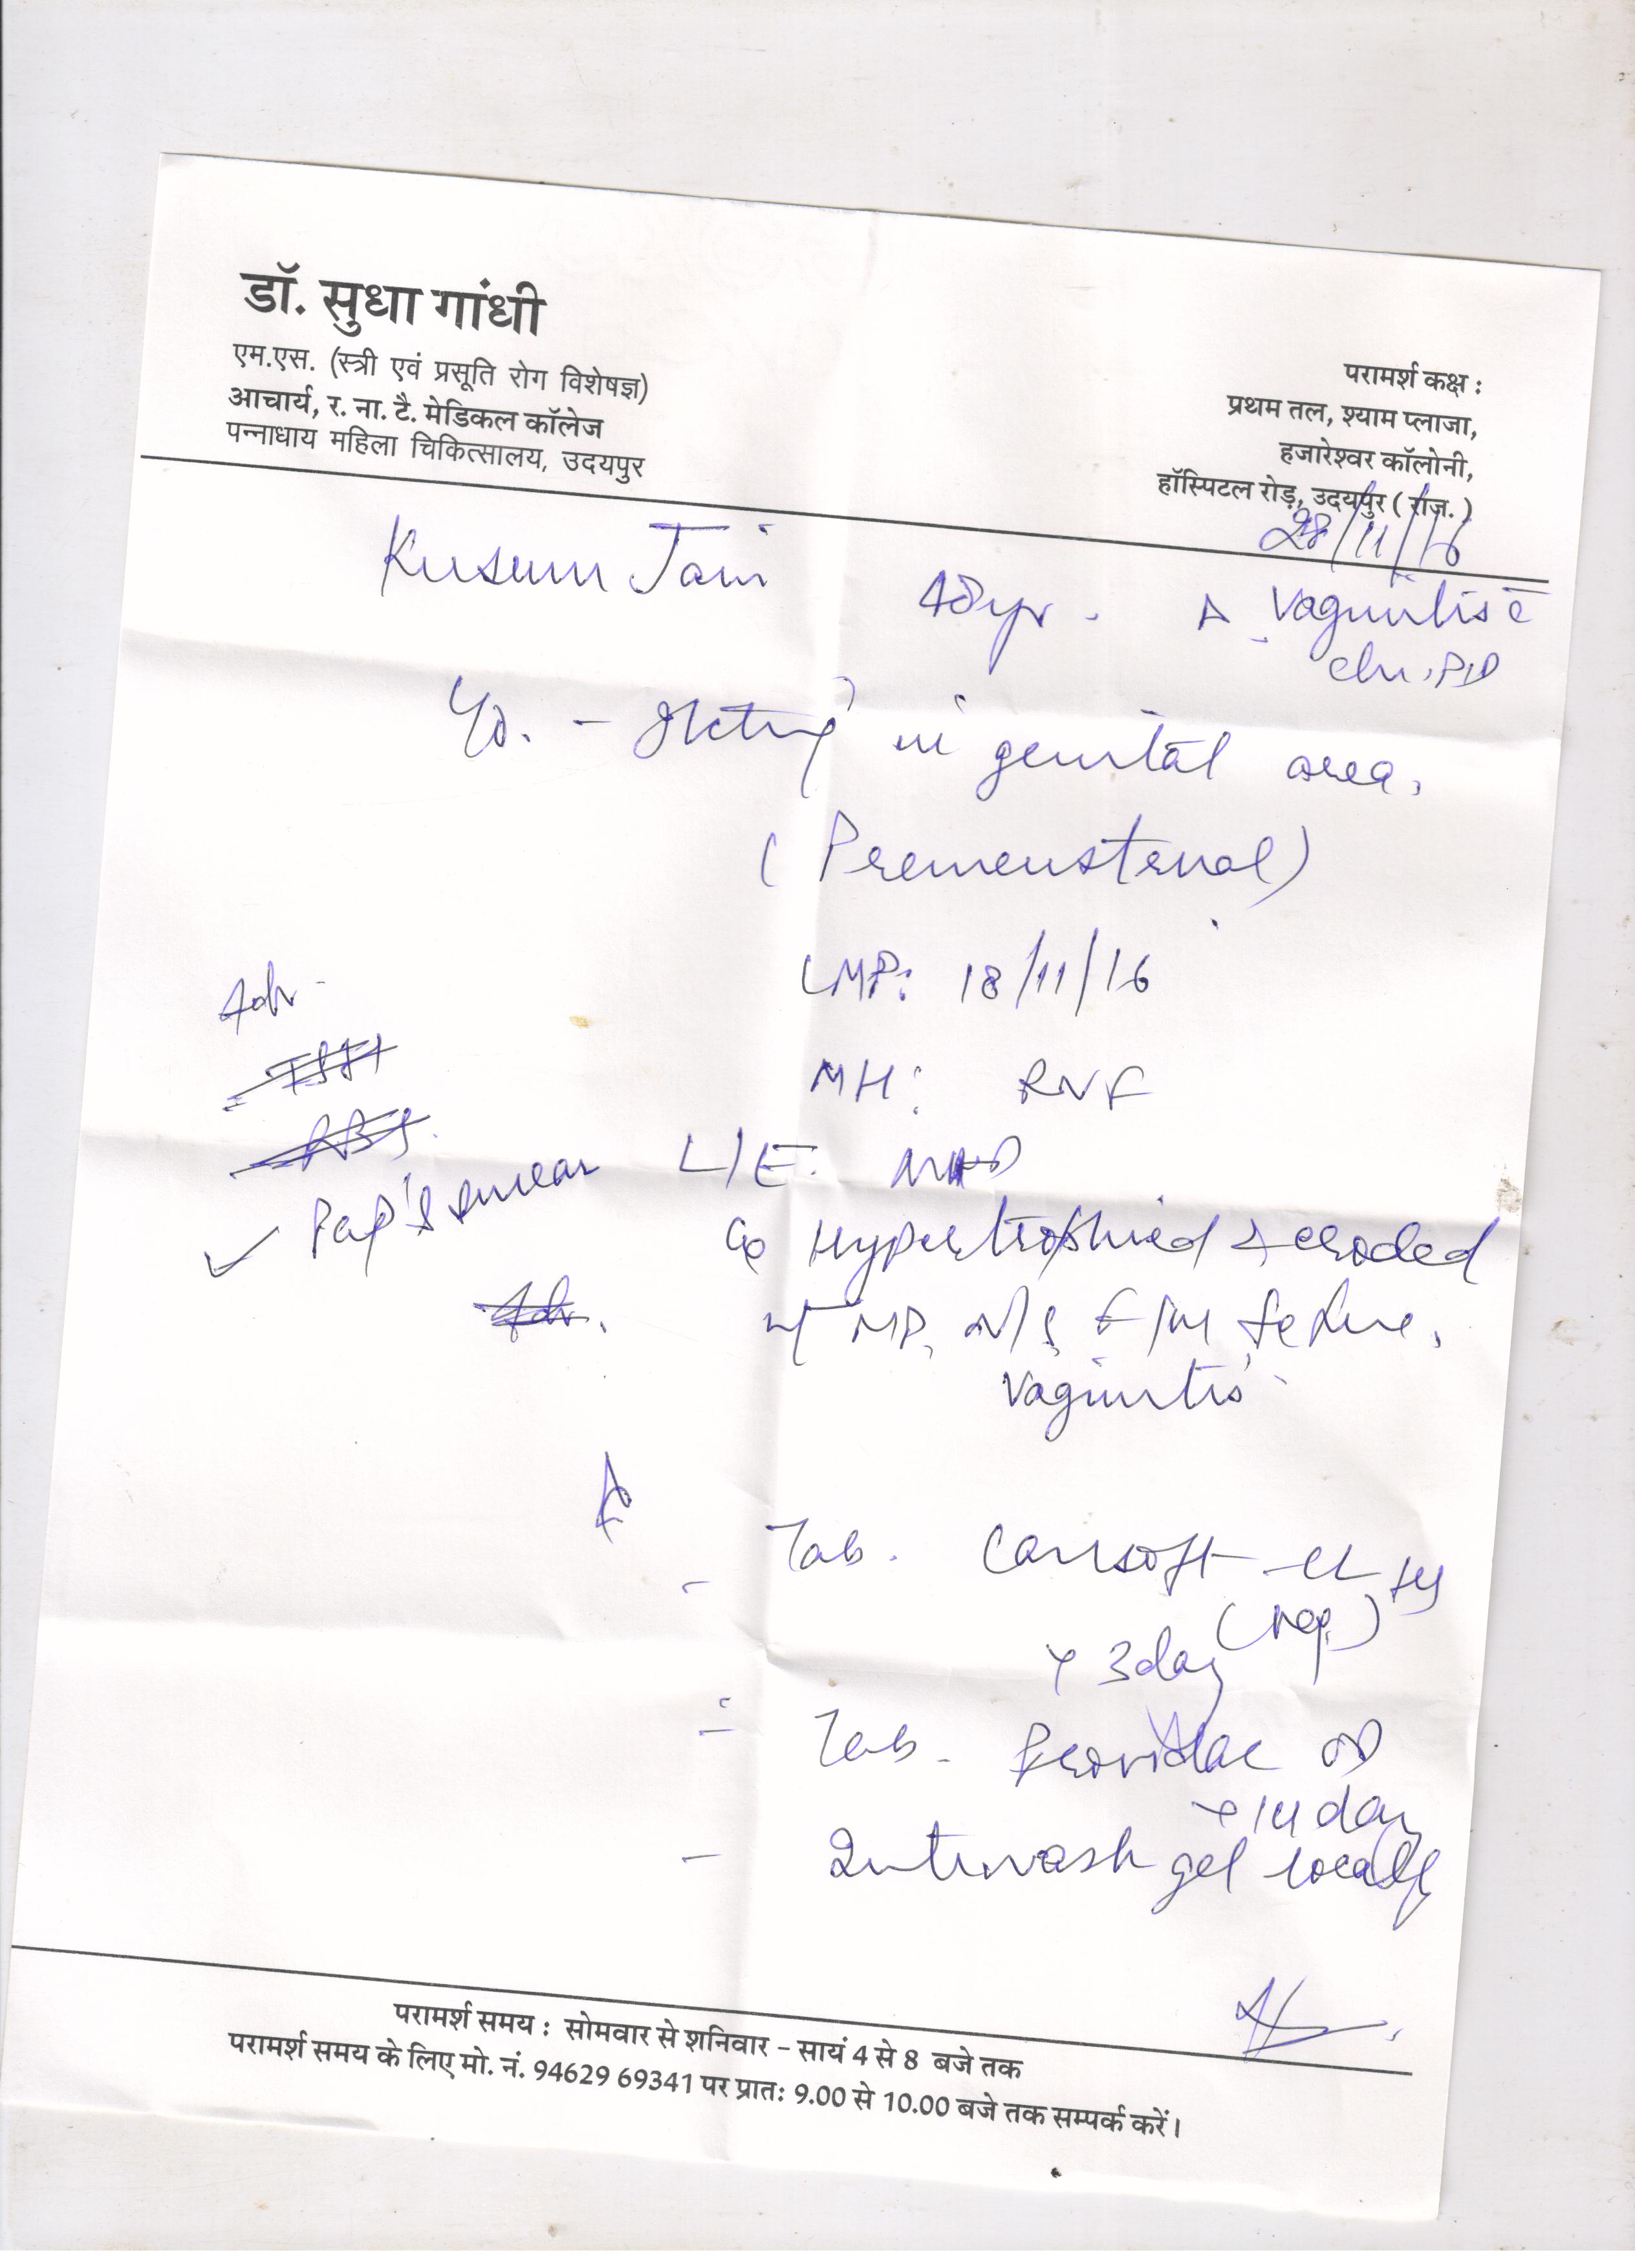 डॉ. सुधा गांधी
एम.एस. (स्त्री एवं प्रसूति रोग विशेषज्ञ)
आचार्य, र. ना. टै. मेडिकल कॉलेज
पन्नाधाय महिला चिकित्सालय, उदयपुर
परामर्श कक्ष :
प्रथम तल, श्याम प्लाजा,
हजारेश्वर कॉलोनी,
हॉस्पिटल रोड़, उदयपुर ( राज. )
28/11/16
Kusum Jain 48yr. Δ Vaginitis c̄
chr. PID
C/o. - Itching in genital area.
(Premenstrual)
LMP: 18/11/16
MH:
L/E:
Cx Hypertrophied & eroded
Vaginitis
Adv -
✓ Pap's smear
Adv.
Tab. Cansoft-CL
x 3day
- Tab. OD
x 14 day
- Intiwash gel locally
परामर्श समय : सोमवार से शनिवार - सायं 4 से 8 बजे तक
परामर्श समय के लिए मो. नं. 94629 69341 पर प्रातः 9.00 से 10.00 बजे तक सम्पर्क करें।